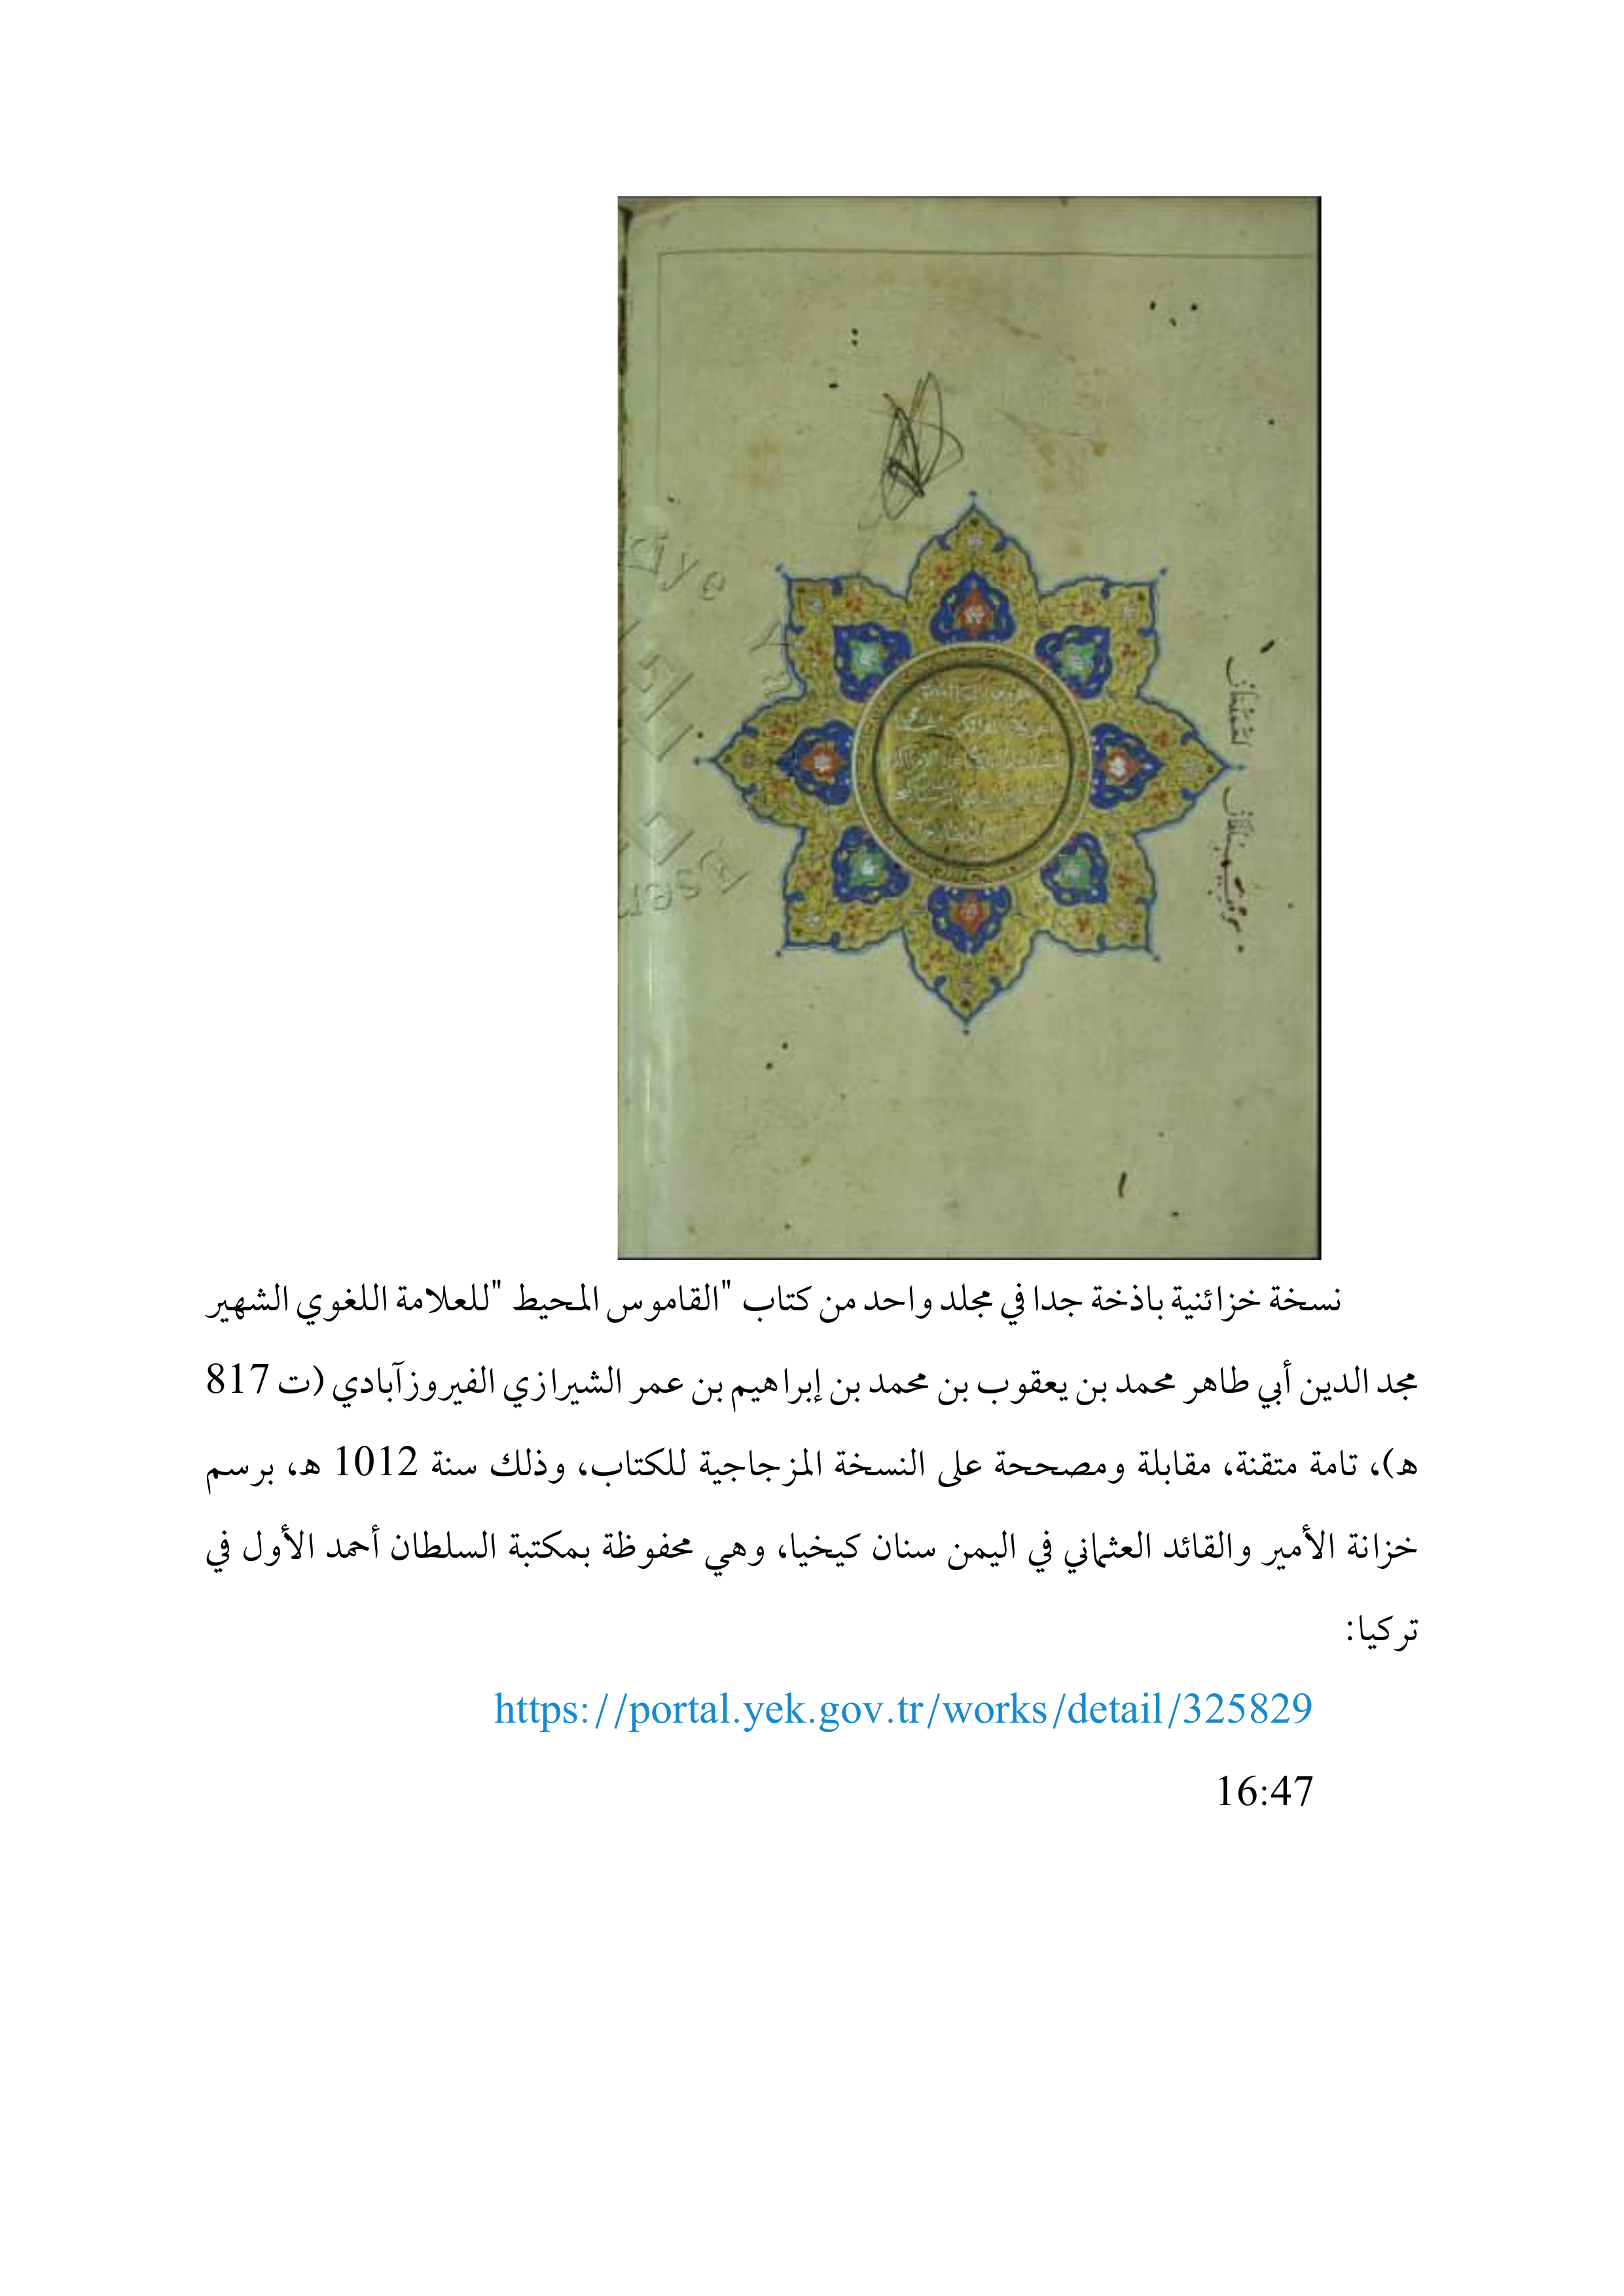 نسخة خزائنية باذخة جدا في مجلد واحد من كتاب "القاموس المحيط "للعلامة اللغوي الشهير
مجد الدين أبي طاهر محمد بن يعقوب بن محمد بن إبراهيم بن عمر الشيرازي الفيروزآبادي (ت 817
هـ)، تامة متقنة، مقابلة ومصححة على النسخة المزجاجية للكتاب، وذلك سنة 1012 هـ، برسم
خزانة الأمير والقائد العثماني في اليمن سنان كيخيا، وهي محفوظة بمكتبة السلطان أحمد الأول في
تركيا:
https://portal.yek.gov.tr/works/detail/325829
16:47